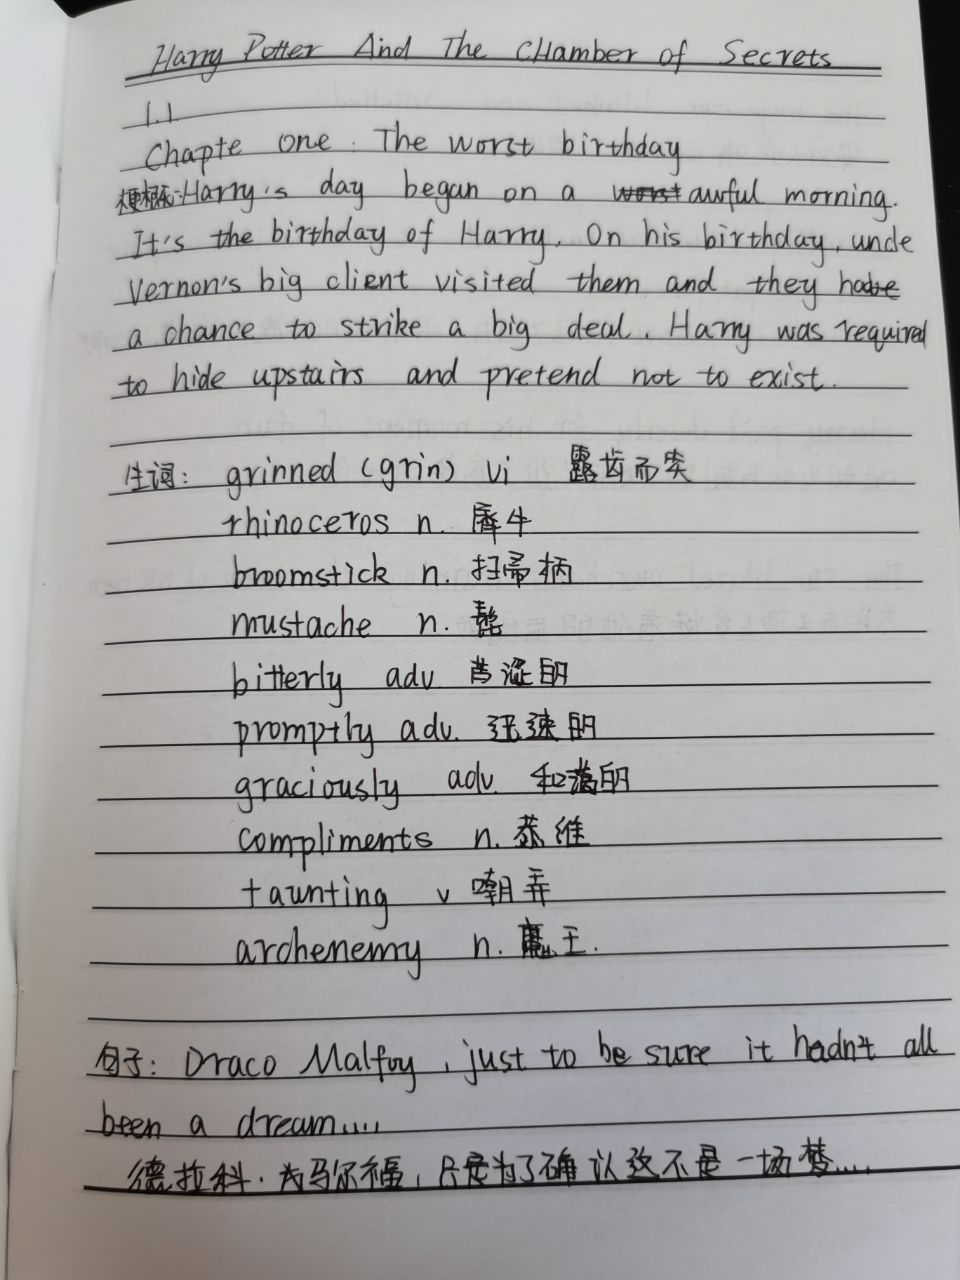 Harry Potter And The CHamber of Secrets
1.1
Chapte one. The worst birthday
梗概:Harry's day began on a worst awful morning.
It's the birthday of Harry. On his birthday, uncle
Vernon's big client visited them and they have
a chance to strike a big deal. Harry was required
to hide upstairs and pretend not to exist.
生词: grinned (grin) vi 露齿而笑
rhinoceros n. 犀牛
broomstick n. 扫帚柄
mustache n.
bitterly adv 苦涩的
promptly adv. 迅速的
graciously adv. 和蔼的
compliments n. 恭维
taunting v 嘲弄
archenemy n. 魔王.
句子: Draco Malfoy, just to be sure it hadn't all
been a dream....
德拉科·马尔福, 只是为了确认这不是一场梦....